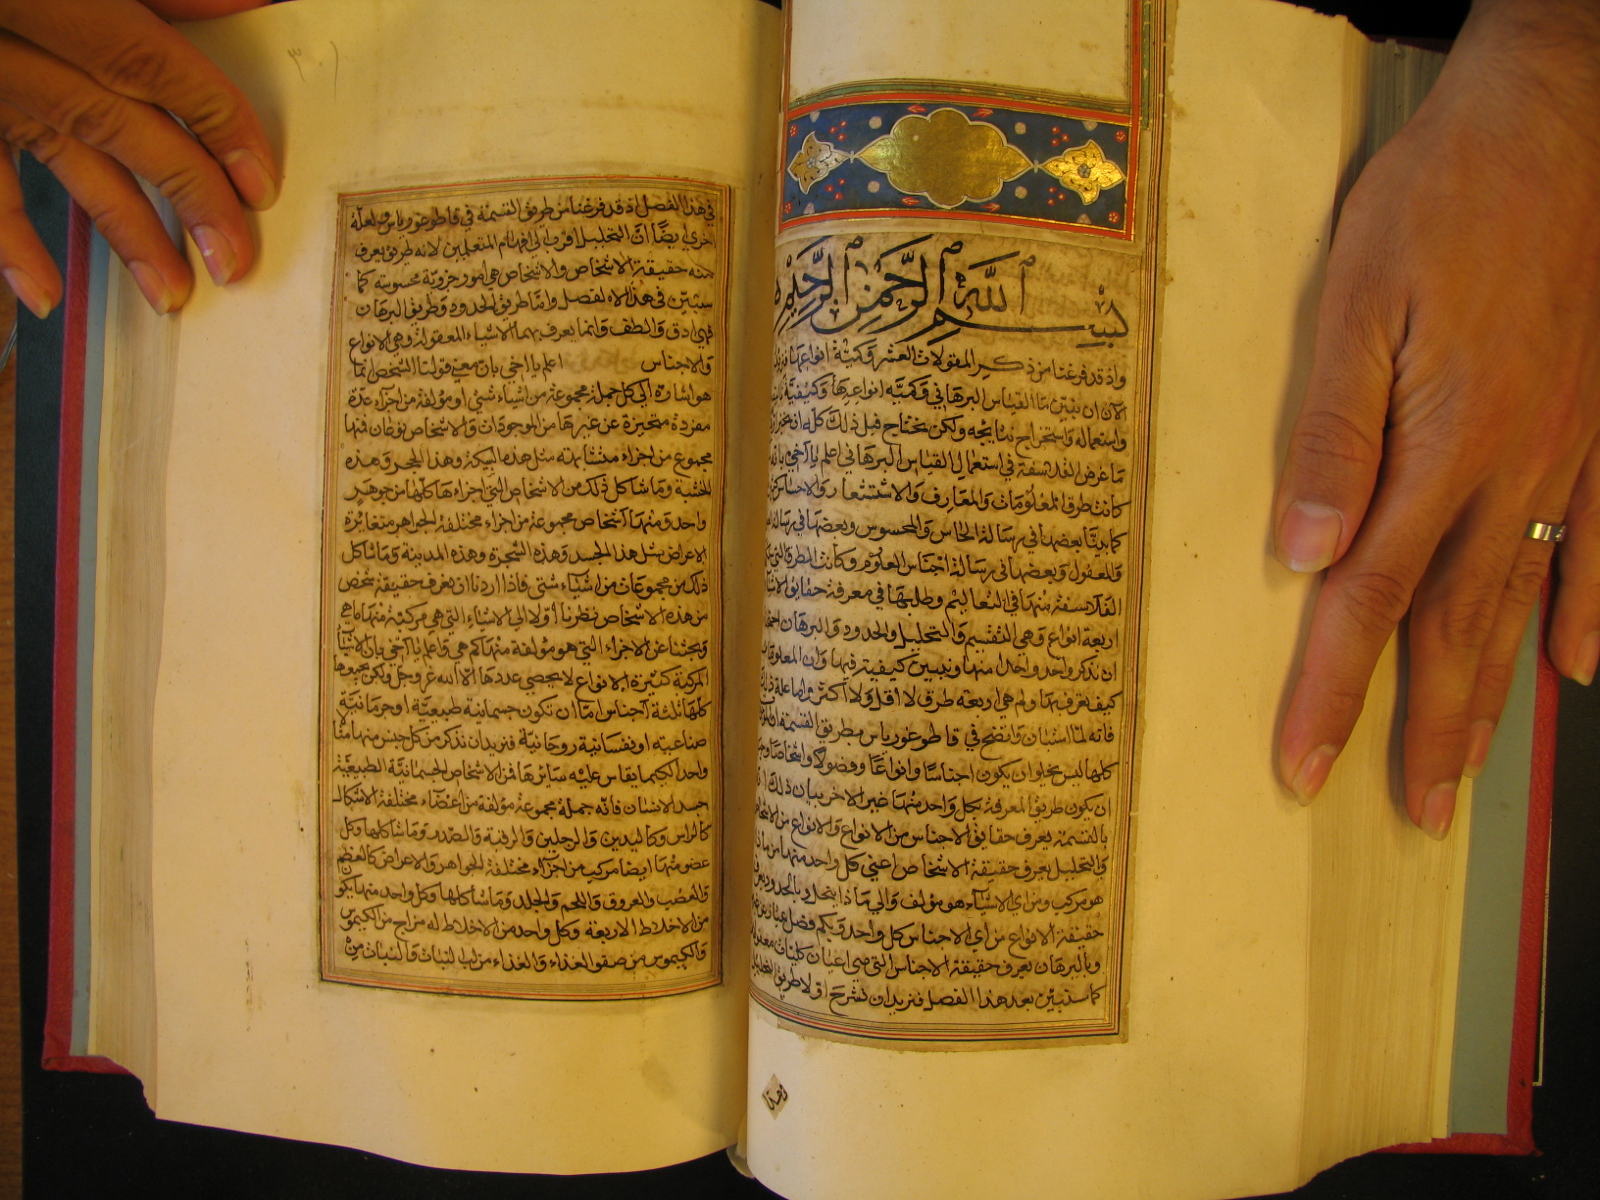 بسم الله الرحمن الرحيم
واذ قد فرغنا من ذكر المقولات العشر وكمية انواعها فنريد
الآن ان نبين ما القياس البرهاني وكميه انواعها وكيفية
واستعماله واستخراج نتايجه ولكن نحتاج قبل ذلك كله ان نخبر
ما غرض الفلاسفة في استعمال القياس البرهاني اعلم يا اخي بانه
كانت طرق المعلومات والمعارف والاستشعار والاحساس
كما بينا بعضها في رسالة الحاس والمحسوس وبعضها في رسالة
والمعقول وبعضها في رسالة اجناس العلوم وكانت الطرق التي
الفلاسفة منها في التعاليم وطلبها في معرفة حقايق الاشيا
اربعة انواع وهي التقسيم والتحليل والحدود والبرهان
ان نذكر واحد واحدا منها ونبين كيفيته فيها وان المعلومات
كيف تعرف بها ولم هي اربعه طرق لا اقل ولا اكثر واما علة ذلك
فانه لما استبان واتضح في قاطوغورياس بطريق القسمة
كلها ليس يخلو ان يكون اجناسا وانواعا وفصولا واشخاصا
ان يكون طريق المعرفة بكل واحد منها غير الاخر بيان ذلك
بالقسمة يعرف حقايق الاجناس من الانواع والانواع من الاشخاص
وبالتحليل يعرف حقيقة الاشخاص اعني كل واحد منها من ماذا
هو مركب ومن اي الاشياء هو مؤلف والي ماذا ينحل وبالحدود يعرف
حقيقة الانواع من اي الاجناس كل واحد وبكم فصل
وبالبرهان يعرف حقيقة الاجناس التي هي اعيان كليات
كما سنبين بعد هذا الفصل فنريد ان نشرح اولا طريق التحليل
وهذا
في هذا الفصل اذ قد فرغنا من طريق القسمة في قاطوغورياس ولعلة
اخري ايضا ان التحليل اقرب الي افهام المتعلمين لانه طريق يعرف
منه حقيقة الاشخاص والاشخاص هي امور جزوية محسوسة كما
سنبين في هذا الفصل واما طريق الحدود وطريق البرهان
فهي ادق والطف وانما يعرف بهما الاشياء المعقولة وهي الانواع
والاجناس اعلم يا اخي بان معني قولنا الشخص انما
هو اشارة الي كل جملة مجموعة من اشياء شتي او مؤلفة من اجزاء عدة
مفردة متحيزة عن غيرها من الموجودات والاشخاص نوعان فمنها
مجموع من اجزاء متشابهة مثل هذه السبيكة وهذا الحجر وهذه
الخشبة وما شاكل ذلك من الاشخاص التي اجزاءها كلها من جوهر
واحد ومنها اشخاص مجموعة من اجزاء مختلفة الجواهر متغايرة
الاعراض مثل هذا الجسد وهذه الشجرة وهذه المدينة وما شاكل
ذلك من مجموعات من اشياء شتي فاذا اردنا ان نعرف حقيقة شخص
من هذه الاشخاص نظرنا اولا الي الاشياء التي هي مركبة منها ما هي
وبحثنا عن الاجزاء التي هو مؤلفه منها كم هي واعلم يا اخي بان الاشيا
المركبة كثيرة الانواع لا يحصي عددها الا الله عز وجل ولكن يجمعها
كلها ثلثة اجناس اما ان تكون جسمانية طبيعية او جرمانية
صناعيه او نفسانية روحانية فنريد ان نذكر من كل جنس منها مثا
واحدا كيما يقاس عليه سائرها فمن الاشخاص الجسمانية الطبيعية
جسد الانسان فانه جملة مجموعة مؤلفة من اعضاء مختلفة الاشكال
كالراس وكاليدين والرجلين والرقبة والصدر وما شاكلها وكل
عضو منها ايضا مركب من اجزاء مختلفة الجواهر والاعراض كالعظم
والعصب والعروق واللحم والجلد وما شاكلها وكل واحد منها يكو
من الاخلاط الاربعة وكل واحد من الاخلاط له مزاج من الكيموس
والكيموس من صفو الغذاء والغذاء من لب النبات والنبات من